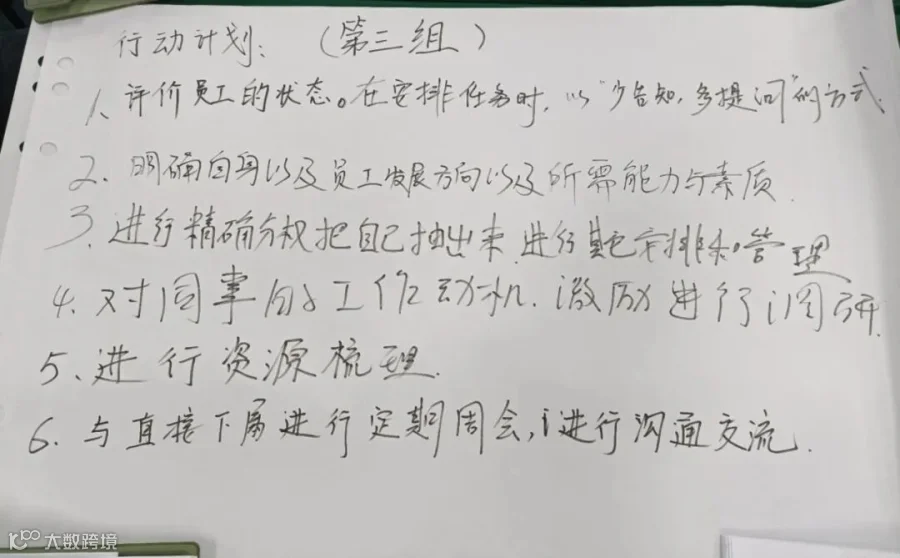 行动计划：（第三组）
1、评价员工的状态。在安排任务时，以“少告知，多提问”的方式.
2、明确自身以及员工发展方向以及所需能力与素质.
3、进行精确分权把自己抽出来,进行其它安排和管理
4、对同事的工作动机、激励进行调研.
5、进行资源梳理.
6、与直接下属进行定期周会，进行沟通交流.
大数跨境